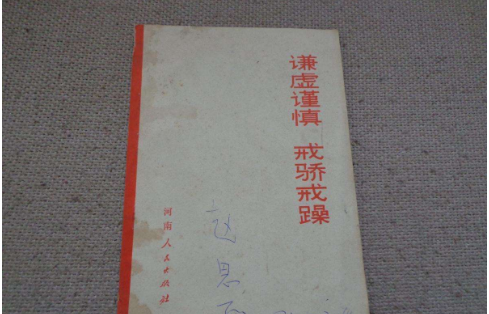 谦虚谨慎 戒骄戒躁
赵思
河南人民出版社